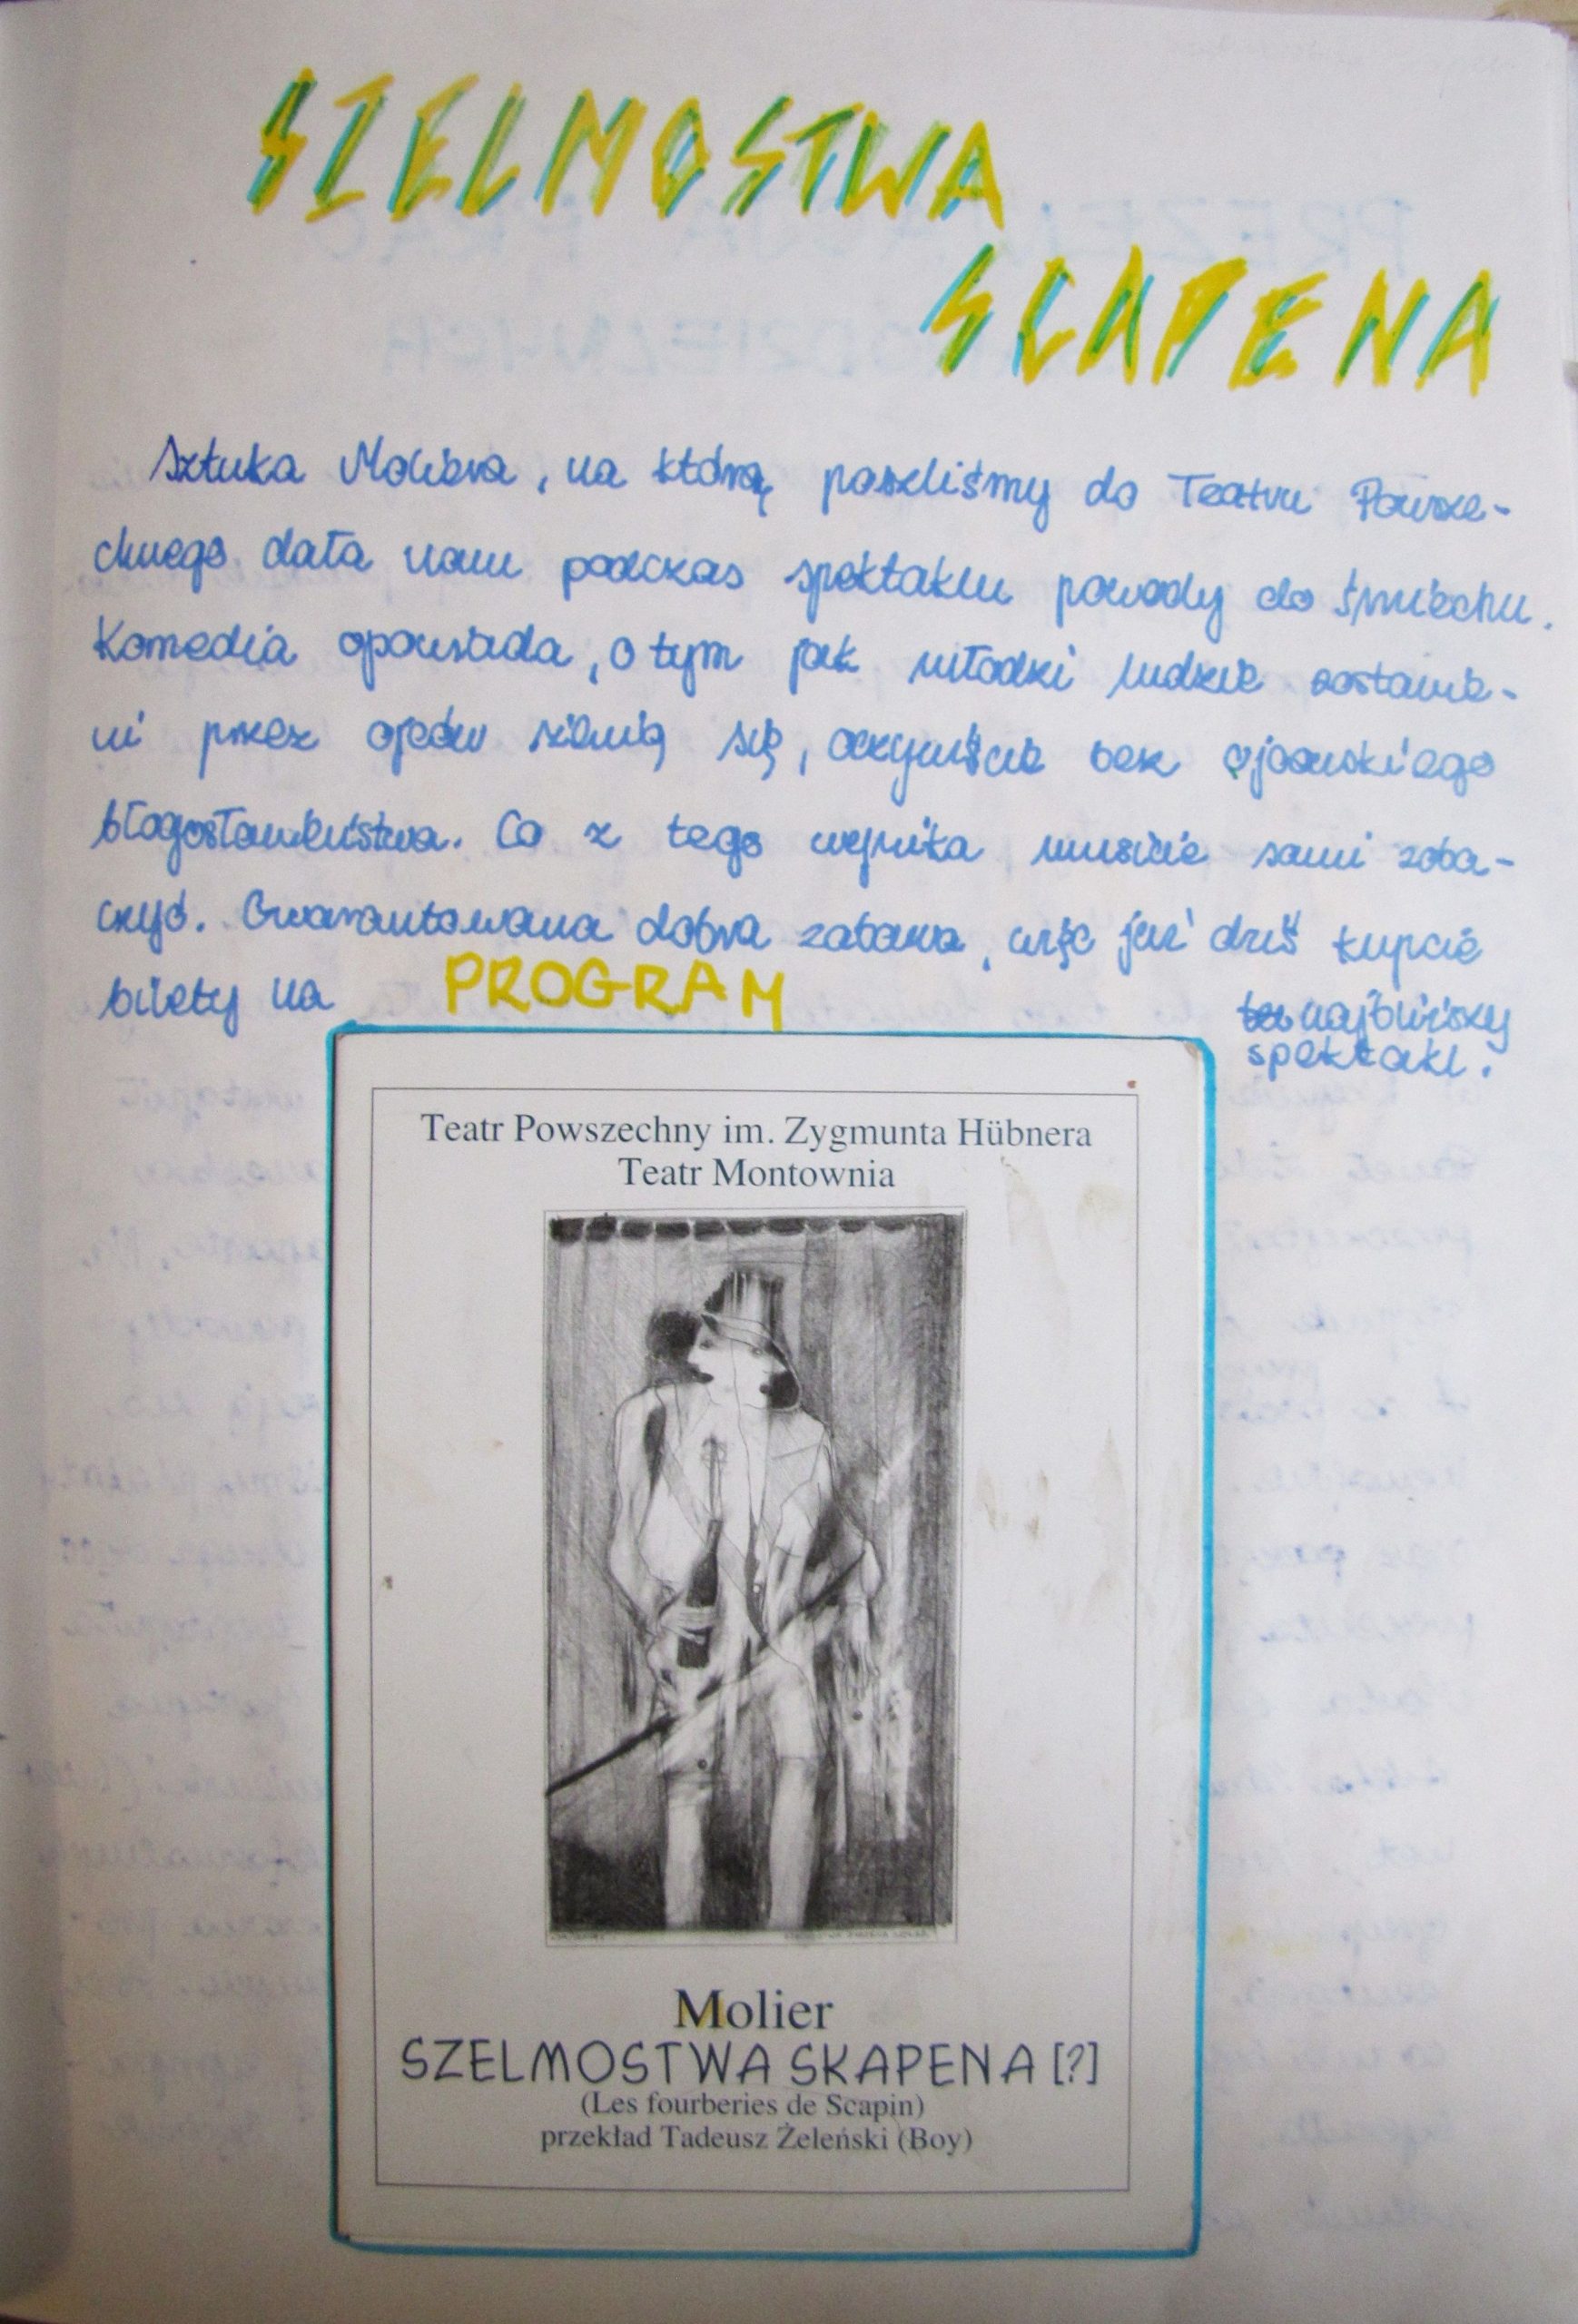 SZELMOSTWA
SCAPENA
Sztuka Moliera, na którą poszliśmy do Teatru Powsze-
chnego dała nam podczas spektaklu powody do śmiechu.
Komedia opowiada, o tym jak młodzi ludzie zostawie-
ni przez ojców żenią się, oczywiście bez ojcowskiego
błogosławieństwa. Co z tego wynika musicie sami zoba-
czyć. Gwarantowana dobra zabawa, więc już dziś kupcie
bilety na najbliższy
spektakl.
PROGRAM
Teatr Powszechny im. Zygmunta Hübnera
Teatr Montownia
Molier
SZELMOSTWA SKAPENA [?]
(Les fourberies de Scapin)
przekład Tadeusz Żeleński (Boy)